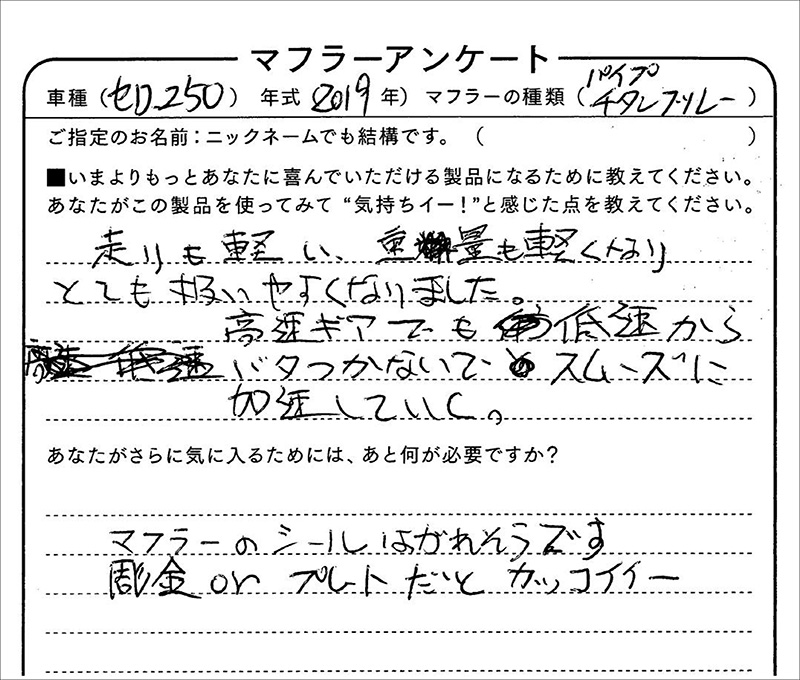 マフラーアンケート
車種（セロー250） 年式（2019年） マフラーの種類（パイプ チタンブルー）
ご指定のお名前：ニックネームでも結構です。（　　　）
■いまよりもっとあなたに喜んでいただける製品になるために教えてください。
あなたがこの製品を使ってみて“気持ちイー！”と感じた点を教えてください。
走りも軽い、重量も軽くなり
とても扱いやすくなりました。
高速ギアでも低速から
バタつかないで スムーズに
加速していく。
あなたがさらに気に入るためには、あと何が必要ですか？
マフラーのシールはがれそうです
彫金or プレートだと カッコイイー